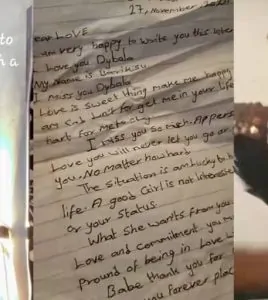 to
h a
27, November, 20
Dear LOVE
am very happy to write you this later
I Love you Dybala
My name is
I miss you Dybala
Love is sweet thing make me happy
am can't forget me in your life
hart for me to
I miss you so much. A pers
Love you will never let you go or
you. No matter how hard
The situation is am lucky to h
life. A good Girl is not interes
or your Status.
What she wants from you
Love and commitment you m
Proud of being in Love
Babe thank you for
you forever plac